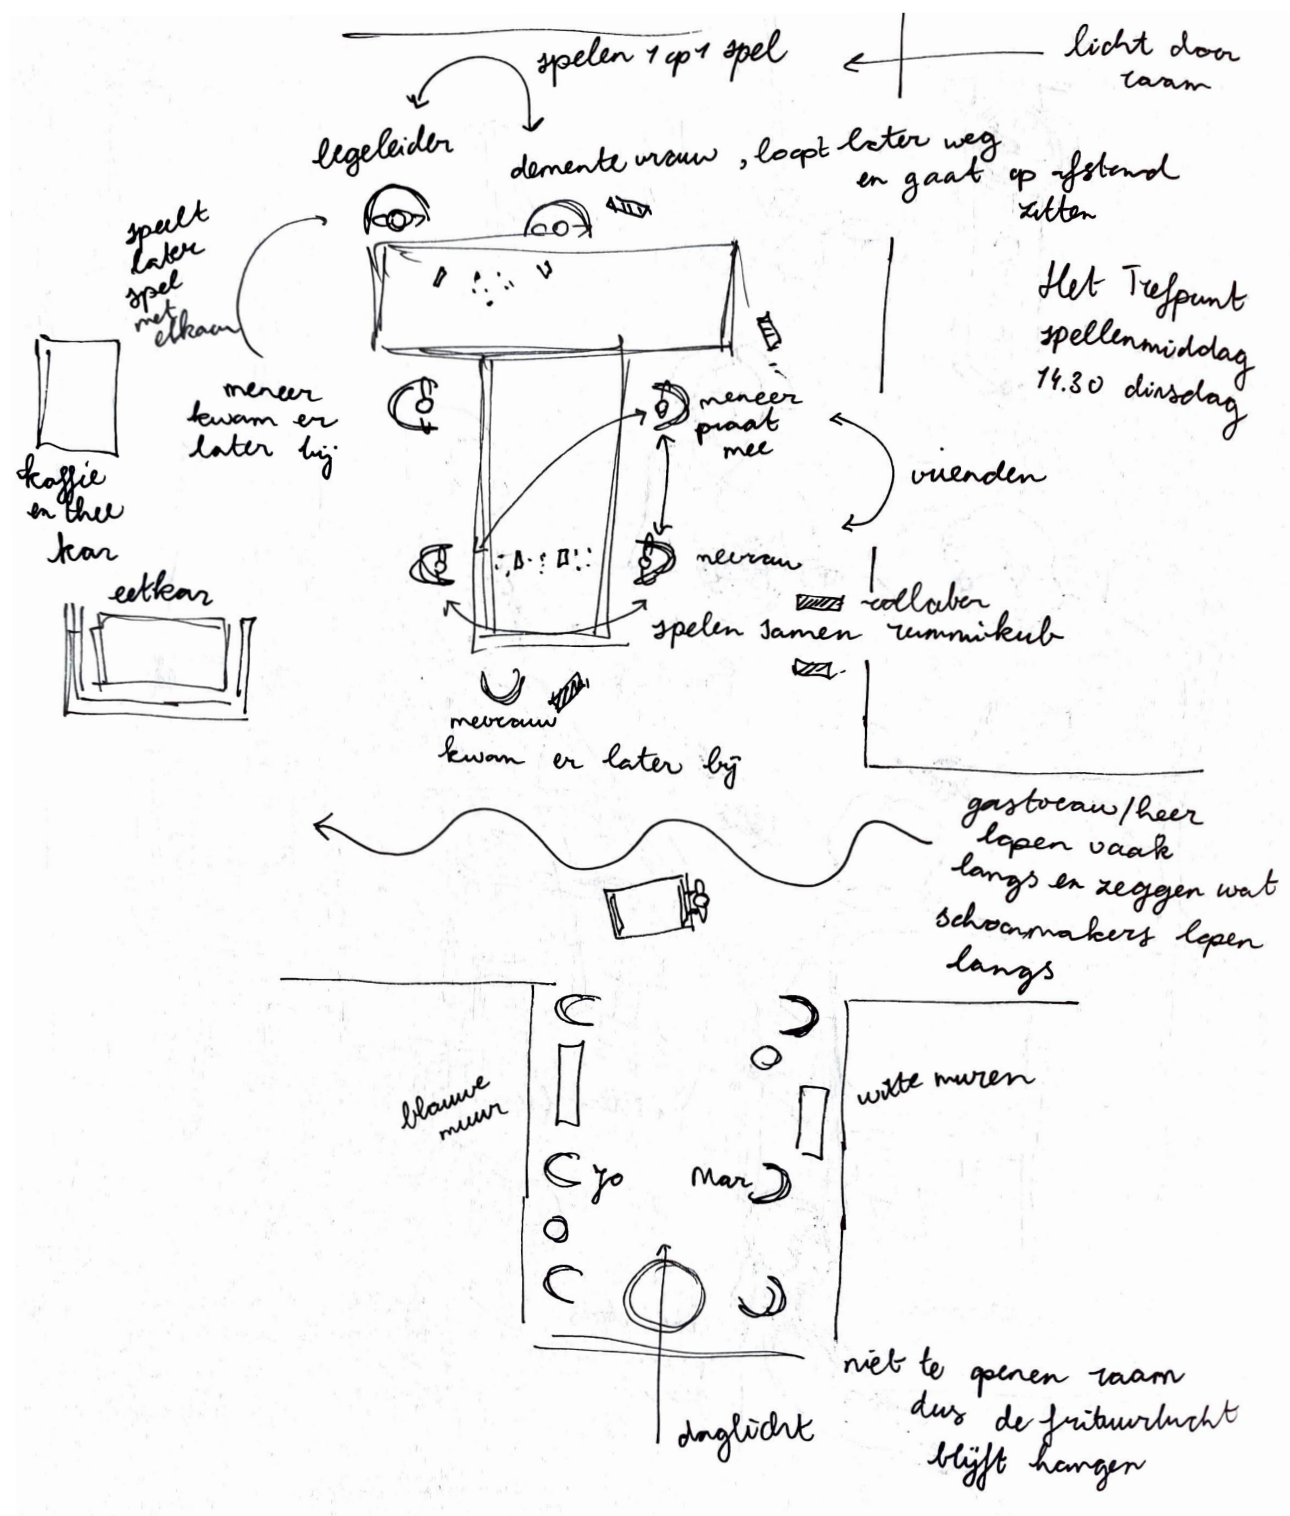 spelen 1 op 1 spel
licht door
raam
begeleider
demente vrouw, loopt later weg
en gaat op afstand
zitten
speelt
later
spel
met
elkaar
Het Trefpunt
spellenmiddag
14.30 dinsdag
meneer
kwam er
later bij
meneer
praat
mee
vrienden
koffie
en thee
kar
mevrouw
eetkar
rollator
spelen samen rummikub
mevrouw
kwam er later bij
gastvrouw/heer
lopen vaak
langs en zeggen wat
schoonmakers lopen
langs
blauwe
muur
witte muren
Jo
Mar
niet te openen raam
dus de frituurlucht
blijft hangen
daglicht